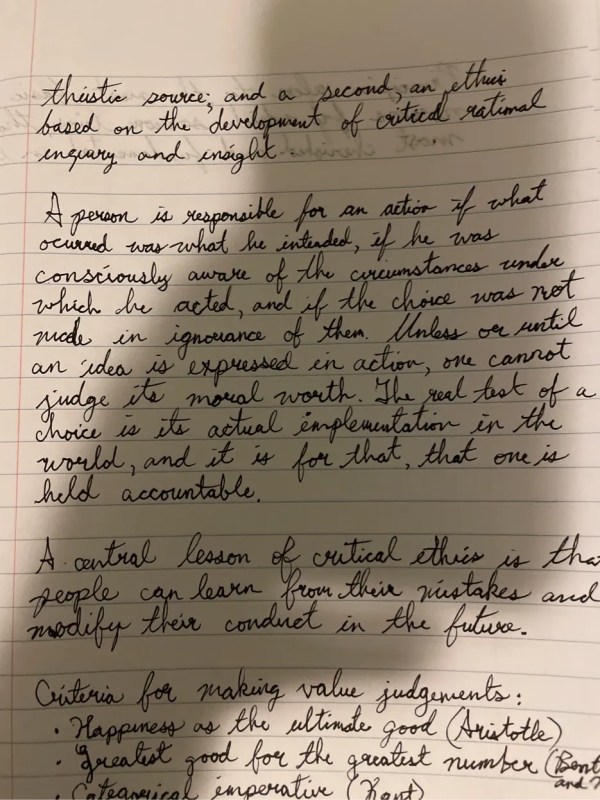 theistic source; and a second, an ethics
based on the development of critical rational
inquary and insight.
A person is responsible for an action if what
ocurred was what he intended, if he was
consciously aware of the circumstances under
which he acted, and if the choice was not
made in ignorance of them. Unless or until
an idea is expressed in action, one cannot
judge its moral worth. The real test of a
choice is its actual implementation in the
world, and it is for that, that one is
held accountable.
A central lesson of critical ethics is tha
people can learn from their mistakes and
modify their conduct in the future.
Criteria for making value judgements:
• Happiness as the ultimate good (Aristotle)
• Greatest good for the greatest number (Bent
and
• Categorical imperative (Kant)